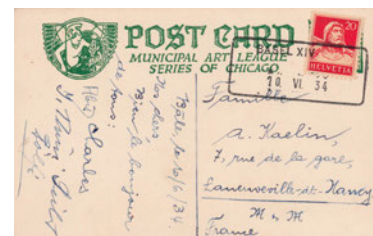 POST CARD
MUNICIPAL ART LEAGUE
SERIES OF CHICAGO
20
HELVETIA
BASEL XIV
10 VI 34
Bâle, le 10/6/34
Bien le bonjour
de tous:
Charles
Famille
A. Kaelin,
7, rue de la gare,
Laneuveville-dt-Nancy
M & M
France